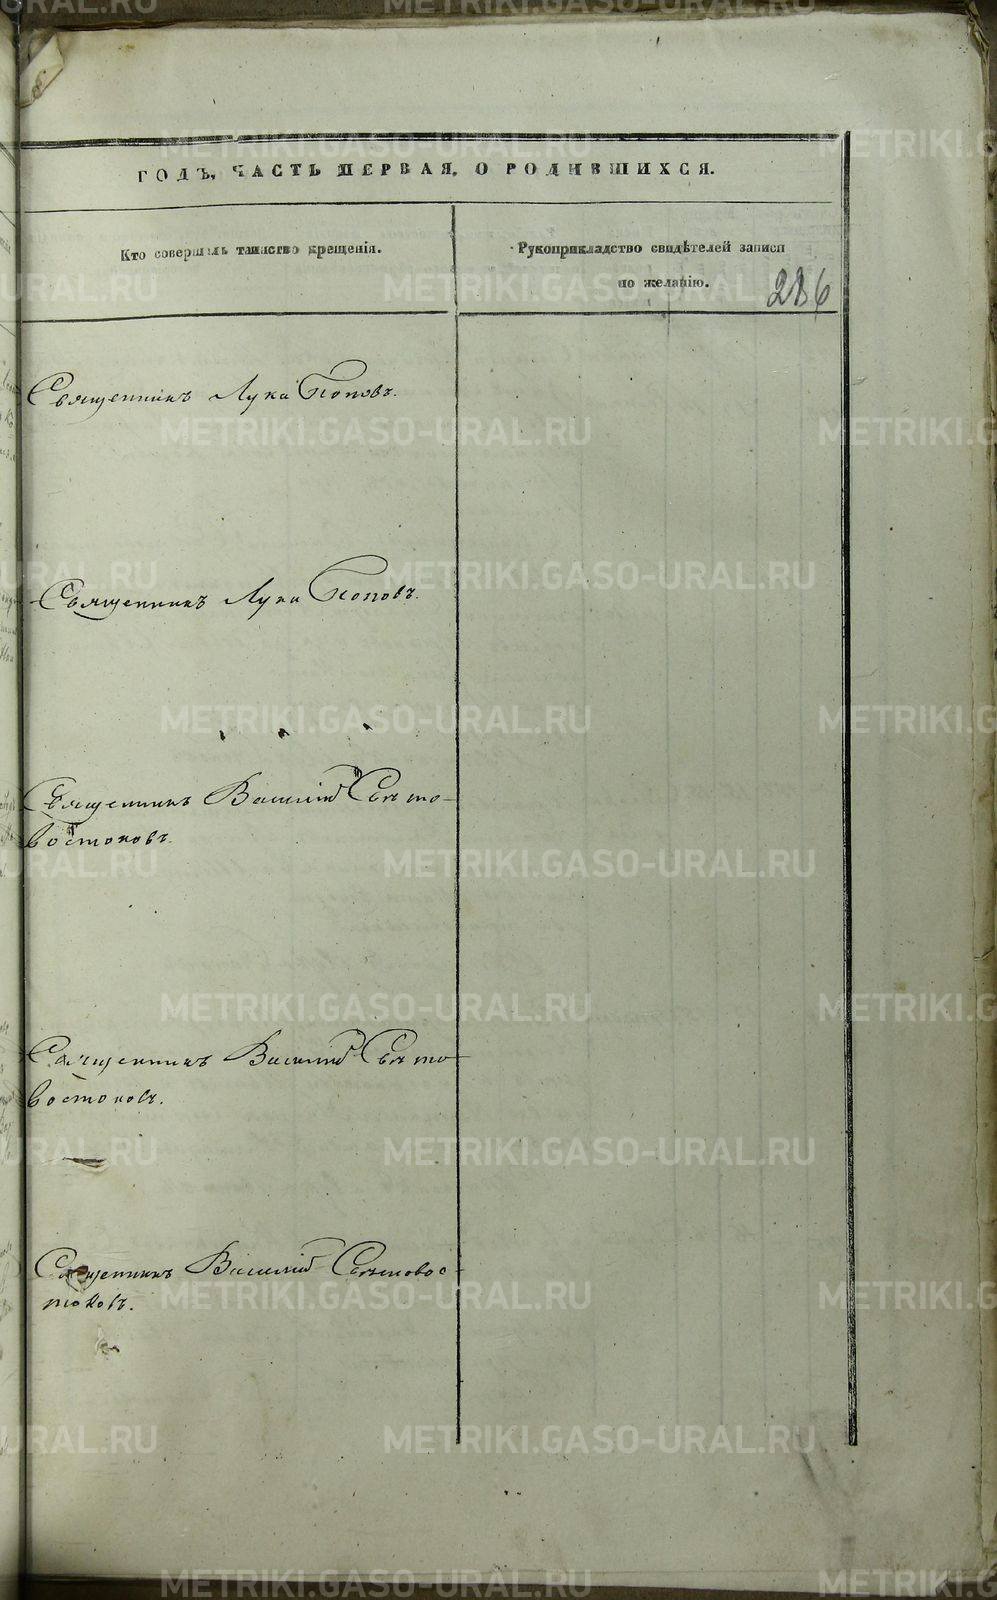 ГОДЪ, ЧАСТЬ ПЕРВАЯ, О РОДИВШИХСЯ.
Кто совершилъ таинство крещенія.
Рукоприкладство свидѣтелей записи
по желанію.
286
Священникъ Лука Поповъ.
Священникъ Лука Поповъ.
Священникъ Василій Свѣто-
востоковъ.
Священникъ Василій Свѣто-
востоковъ.
Священникъ Василій Свѣтовос-
токовъ.
METRIKI.GASO-URAL.RU